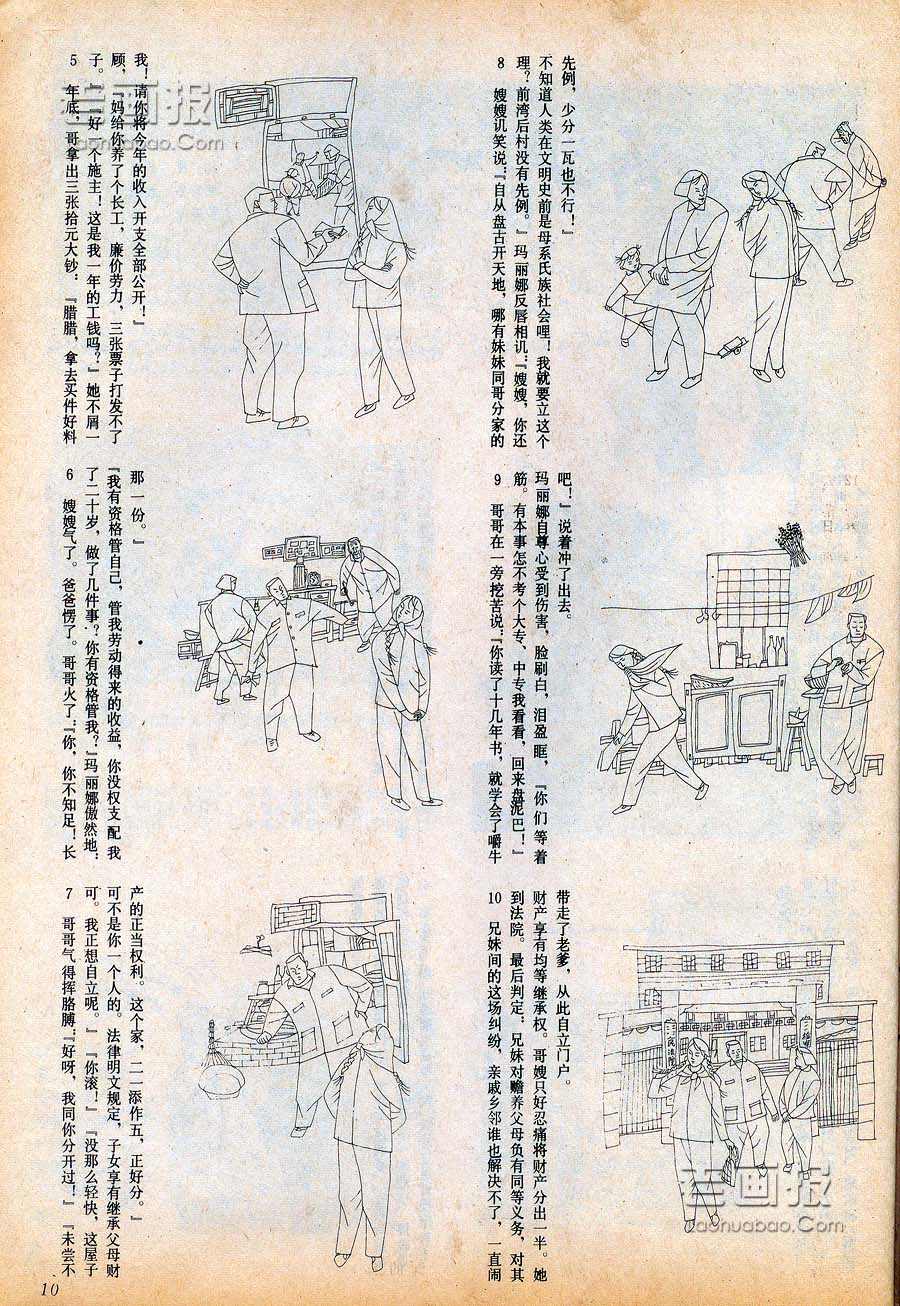 5　年底，哥拿出三张拾元大钞：『腊腊，拿去买件好料
子。』『好一个施主！这是我一年的工钱吗？』她不屑一
顾，『妈给你养了个长工，廉价劳力，三张票子打发不了
我！请你将今年的收入开支全部公开！』
6　嫂嫂气了。爸爸愣了。哥哥火了：『你，你不知足！长
了二十岁，做了几件事？你有资格管我？』玛丽娜傲然地：
『我有资格管自己，管我劳动得来的收益，你没权支配我
那一份。』
7　哥哥气得挥胳膊：『好呀，我同你分开过！』『未尝不
可。我正想自立呢。』『你滚！』『没那么轻快，这屋子
可不是你一个人的。法律明文规定，子女享有继承父母财
产的正当权利。这个家，二一添作五，正好分。』
8　嫂嫂讥笑说：『自从盘古开天地，哪有妹妹同哥分家的
理？前湾后村没有先例。』玛丽娜反唇相讥：『嫂嫂，你还
不知道人类在文明史前是母系氏族社会哩！我就要立这个
先例，少分一瓦也不行！』
9　哥哥在一旁挖苦说：『你读了十几年书，就学会了嚼牛
筋。有本事怎不考个大专、中专我看看，回来盘泥巴！』
玛丽娜自尊心受到伤害，脸刷白，泪盈眶，『你们等着
吧！』说着冲了出去。
10　兄妹间的这场纠纷，亲戚乡邻谁也解决不了，一直闹
到法院。最后判定：兄妹对赡养父母负有同等义务，对其
财产享有均等继承权。哥嫂只好忍痛将财产分出一半。她
带走了老爹，从此自立门户。
民法院
10
老画报
Laohuabao.Com
老画报
Laohuabao.Com